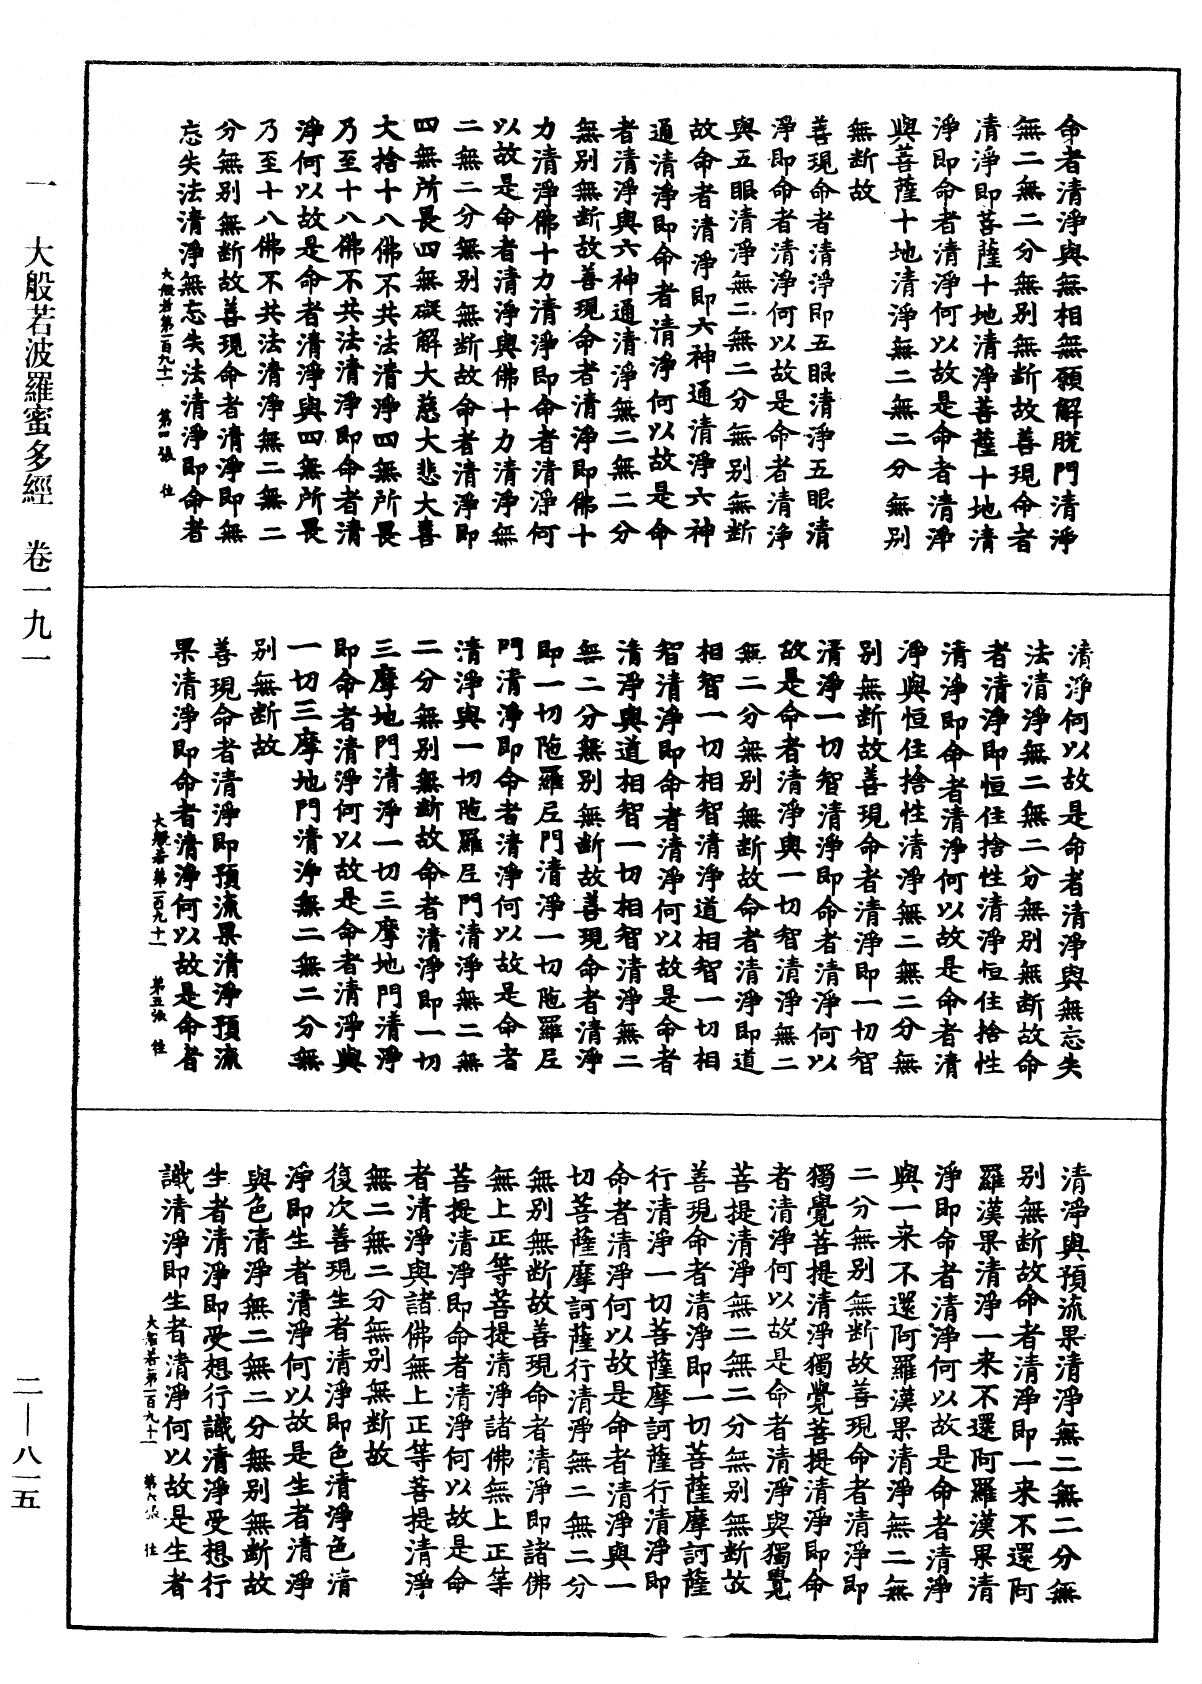 一 大般若波羅蜜多經 卷一九一
命者清淨與無相無願解脫門清淨
無二無二分無別無斷故善現命者
清淨即菩薩十地清淨菩薩十地清
淨即命者清淨何以故是命者清淨
與菩薩十地清淨無二無二分無別
無斷故
善現命者清淨即五眼清淨五眼清
淨即命者清淨何以故是命者清淨
與五眼清淨無二無二分無別無斷
故命者清淨即六神通清淨六神
通清淨即命者清淨何以故是命
者清淨與六神通清淨無二無二分
無別無斷故善現命者清淨即佛十
力清淨佛十力清淨即命者清淨何
以故是命者清淨與佛十力清淨無
二無二分無別無斷故命者清淨即
四無所畏四無礙解大慈大悲大喜
大捨十八佛不共法清淨四無所畏
乃至十八佛不共法清淨即命者清
淨何以故是命者清淨與四無所畏
乃至十八佛不共法清淨無二無二
分無別無斷故善現命者清淨即無
忘失法清淨無忘失法清淨即命者
大般若第一百九十一 第四張 住
清淨何以故是命者清淨與無忘失
法清淨無二無二分無別無斷故命
者清淨即恒住捨性清淨恒住捨性
清淨即命者清淨何以故是命者清
淨與恒住捨性清淨無二無二分無
別無斷故善現命者清淨即一切智
清淨一切智清淨即命者清淨何以
故是命者清淨與一切智清淨無二
無二分無別無斷故命者清淨即道
相智一切相智清淨道相智一切相
智清淨即命者清淨何以故是命者
清淨與道相智一切相智清淨無二
無二分無別無斷故善現命者清淨
即一切陁羅尼門清淨一切陁羅尼
門清淨即命者清淨何以故是命者
清淨與一切陁羅尼門清淨無二無
二分無別無斷故命者清淨即一切
三摩地門清淨一切三摩地門清淨
即命者清淨何以故是命者清淨與
一切三摩地門清淨無二無二分無
別無斷故
善現命者清淨即預流果清淨預流
果清淨即命者清淨何以故是命者
大般若第一百九十一 第五張 住
清淨與預流果清淨無二無二分無
別無斷故命者清淨即一来不還阿
羅漢果清淨一来不還阿羅漢果清
淨即命者清淨何以故是命者清淨
與一来不還阿羅漢果清淨無二無
二分無別無斷故善現命者清淨即
獨覺菩提清淨獨覺菩提清淨即命
者清淨何以故是命者清淨與獨覺
菩提清淨無二無二分無別無斷故
善現命者清淨即一切菩薩摩訶薩
行清淨一切菩薩摩訶薩行清淨即
命者清淨何以故是命者清淨與一
切菩薩摩訶薩行清淨無二無二分
無別無斷故善現命者清淨即諸佛
無上正等菩提清淨諸佛無上正等
菩提清淨即命者清淨何以故是命
者清淨與諸佛無上正等菩提清淨
無二無二分無別無斷故
復次善現生者清淨即色清淨色清
淨即生者清淨何以故是生者清淨
與色清淨無二無二分無別無斷故
生者清淨即受想行識清淨受想行
識清淨即生者清淨何以故是生者
大般若第一百九十一 第六張 住
二—八一五